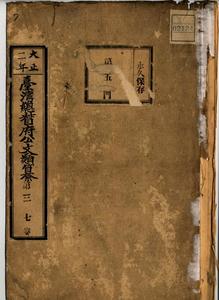 大正
二年
臺灣總督府公文類纂
第三七卷
永久保存
第五門